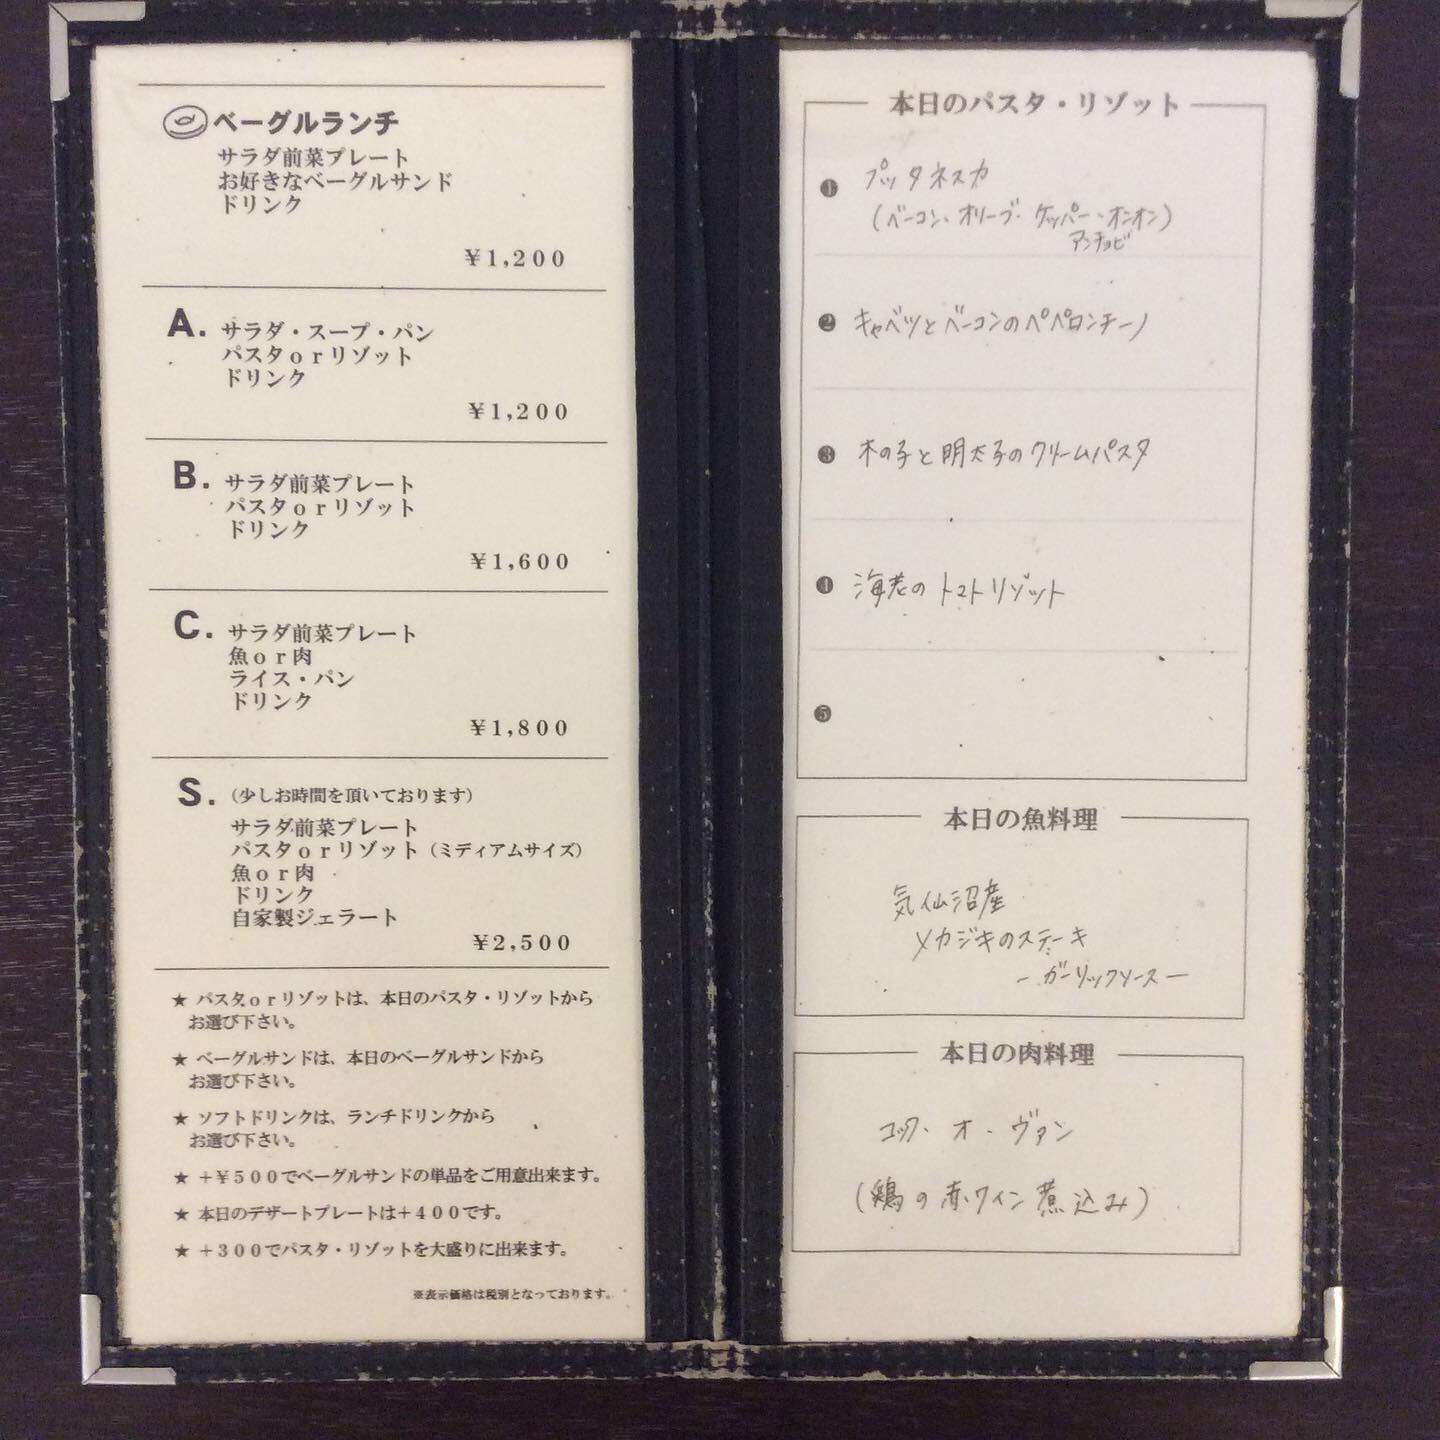 ベーグルランチ
サラダ前菜プレート
お好きなベーグルサンド
ドリンク
¥1,200
A. サラダ・スープ・パン
パスタorリゾット
ドリンク
¥1,200
B. サラダ前菜プレート
パスタorリゾット
ドリンク
¥1,600
C. サラダ前菜プレート
魚or肉
ライス・パン
ドリンク
¥1,800
S. (少しお時間を頂いております)
サラダ前菜プレート
パスタorリゾット(ミディアムサイズ)
魚or肉
ドリンク
自家製ジェラート
¥2,500
★ パスタorリゾットは、本日のパスタ・リゾットから
お選び下さい。
★ ベーグルサンドは、本日のベーグルサンドから
お選び下さい。
★ ソフトドリンクは、ランチドリンクから
お選び下さい。
★ +¥500でベーグルサンドの単品をご用意出来ます。
★ 本日のデザートプレートは+400です。
★ +300でパスタ・リゾットを大盛りに出来ます。
※表示価格は税別となっております。
本日のパスタ・リゾット
❶ プッタネスカ
(ベーコン、オリーブ、ケッパー、オニオン)
アンチョビ
❷ キャベツとベーコンのペペロンチーノ
❸ 木の子と明太子のクリームパスタ
❹ 海老のトマトリゾット
❺
本日の魚料理
気仙沼産
メカジキのステーキ
-ガーリックソース-
本日の肉料理
コック・オ・ヴァン
(鶏の赤ワイン煮込み)